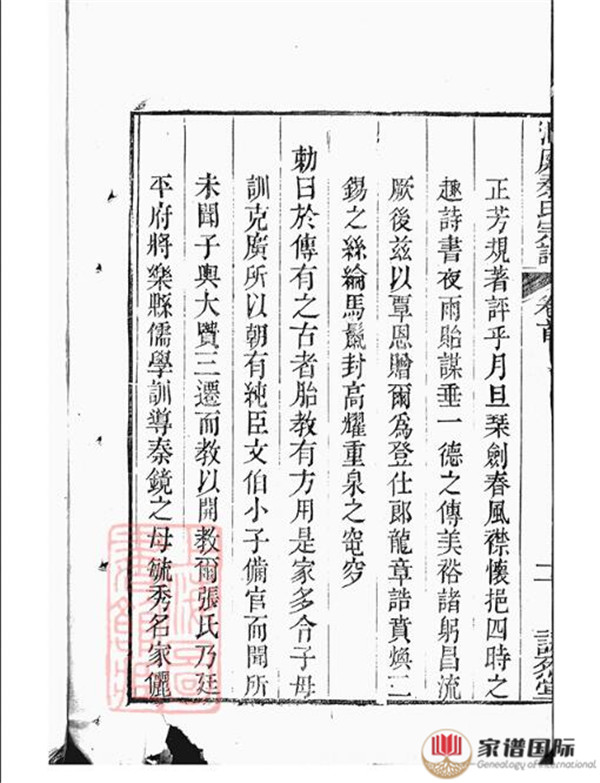 正芳規著評乎月旦琹劍春風襟懷挹四時之
趣詩書夜雨貽謀垂一德之傳美裕諸躬昌流
厥後兹以覃恩贈爾為登仕郎龍章誥賁煥二
錫之絲綸馬鬛封高耀重泉之窀穸
勅曰於傳有之古者胎教有方用是家多令子母
訓克廣所以朝有純臣文伯小子備官而聞所
未聞子輿大賢三遷而教以開教爾張氏乃廷
平府將樂縣儒學訓導秦鏡之母毓秀名家儷
秦氏宗譜
卷首
二
家谱国际
Genealogy of International